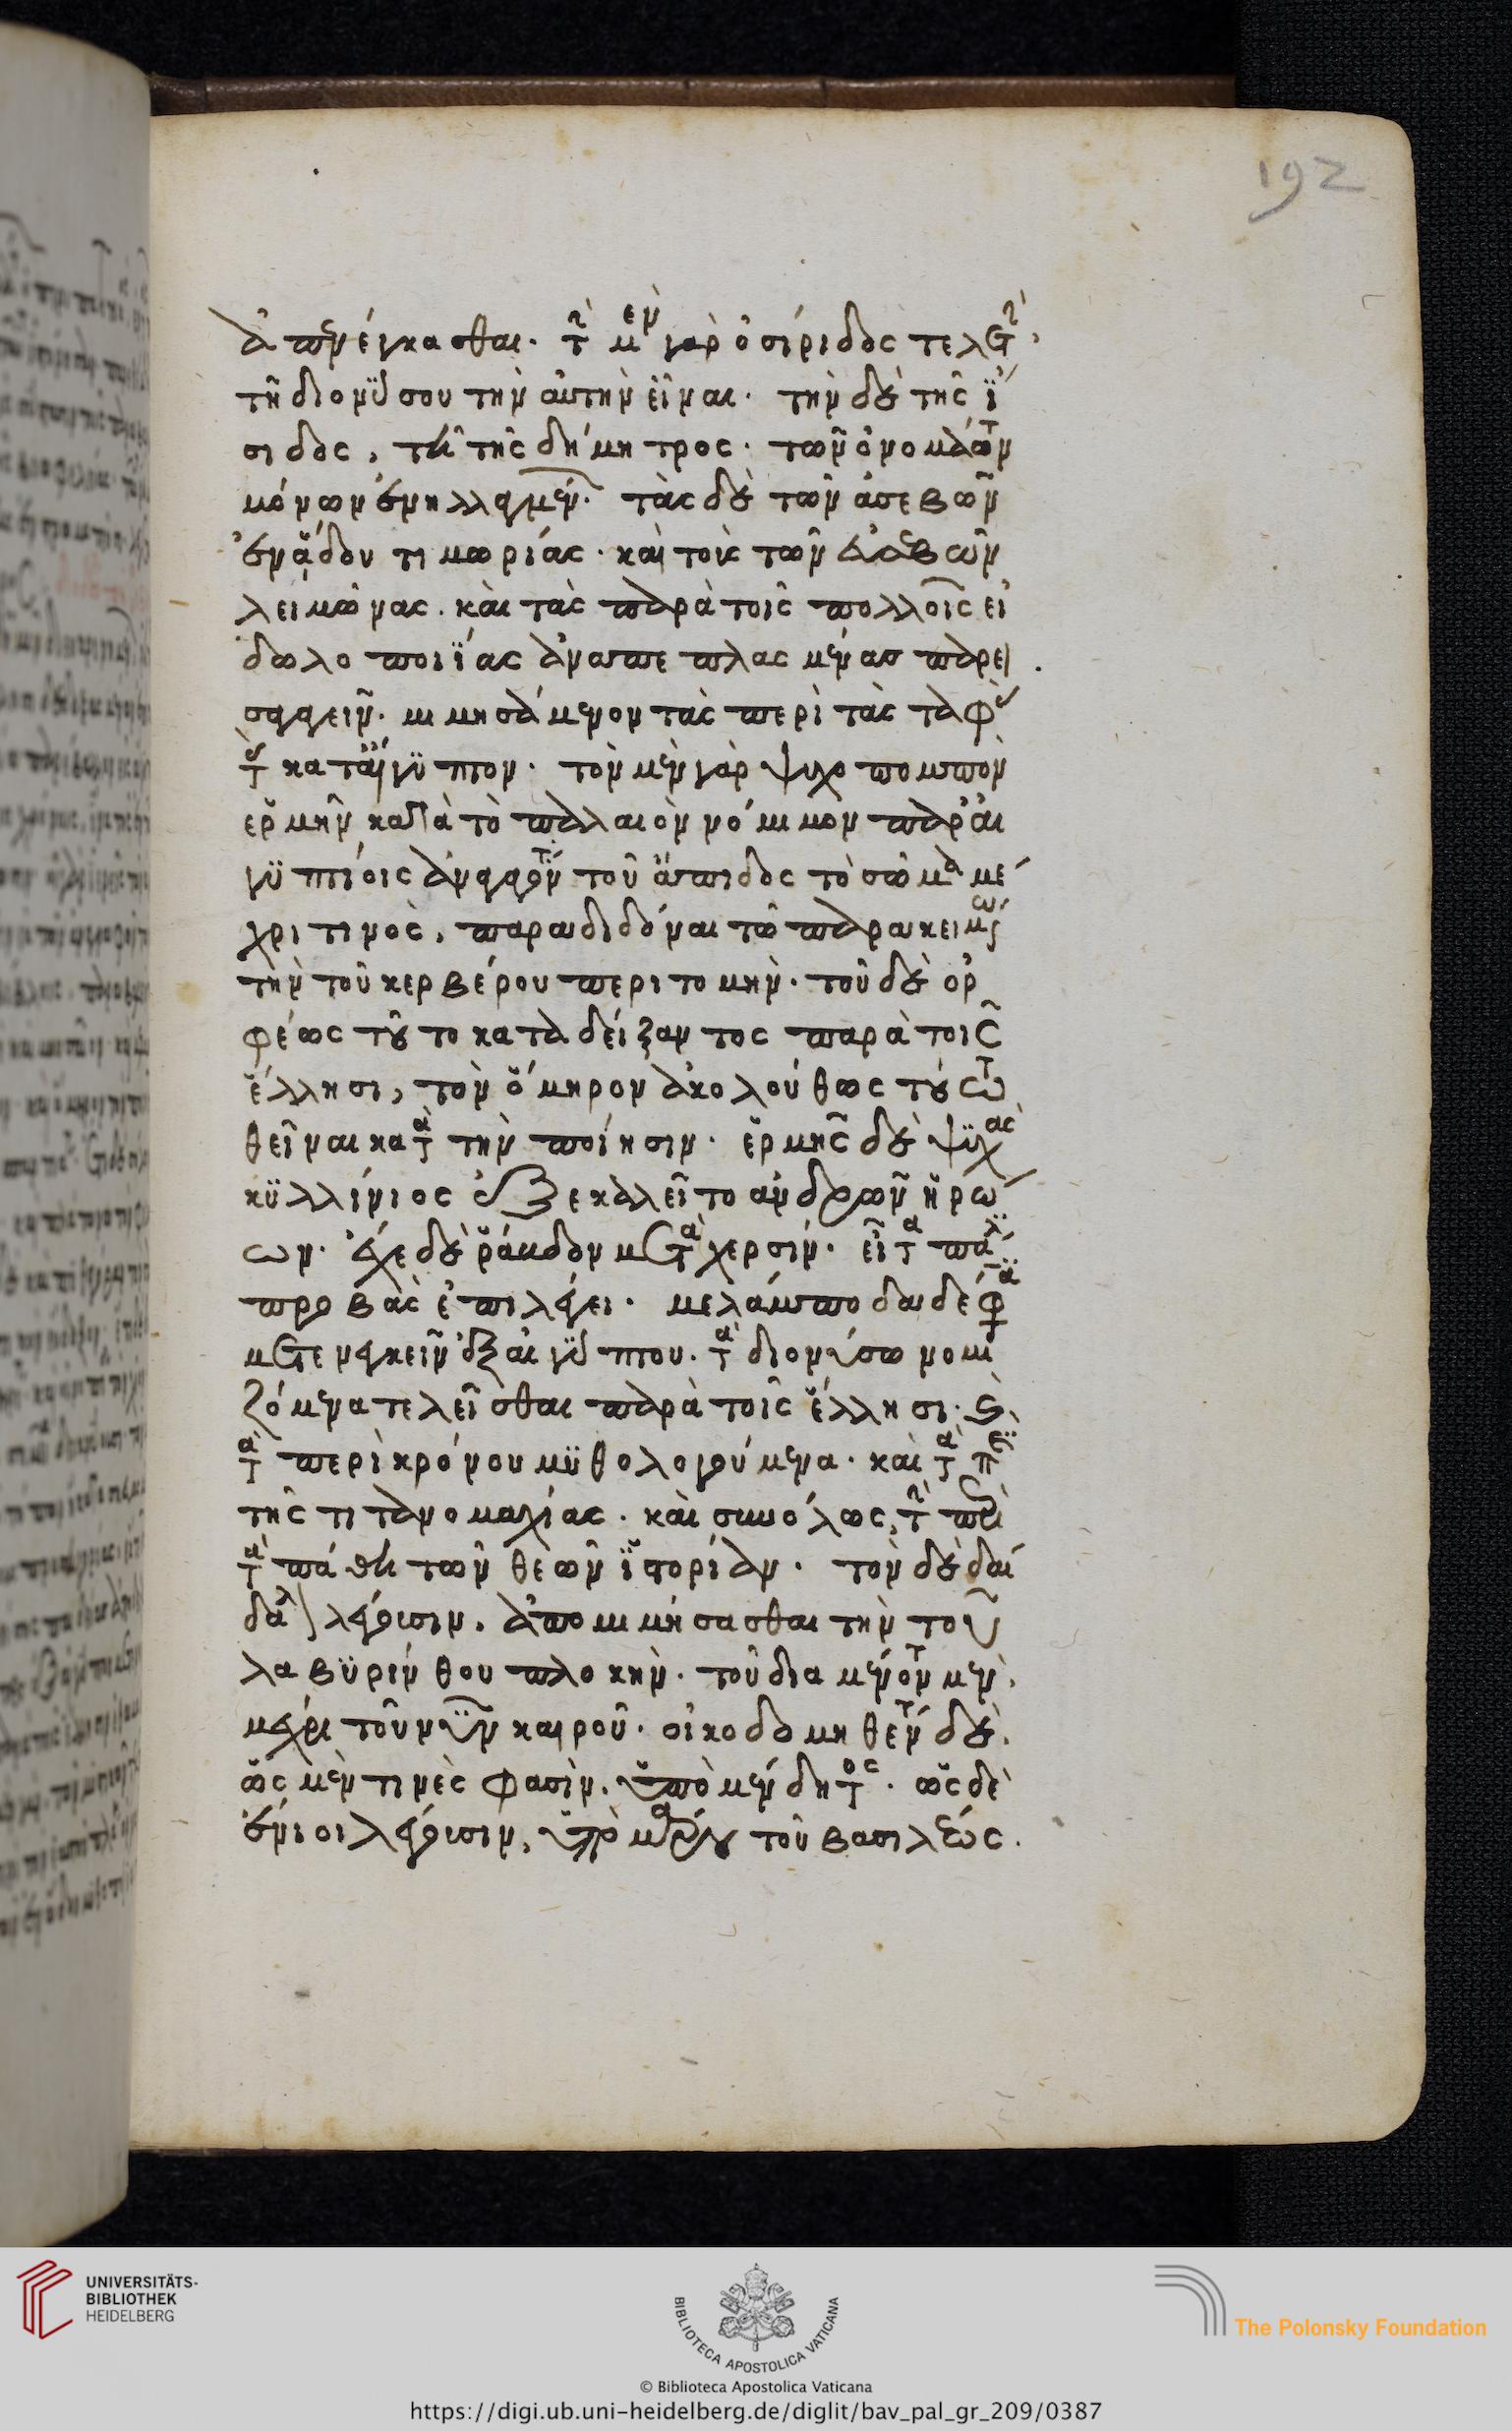 ἀπενέγκασθαι· τὴν μὲν γὰρ ὀσίριδος τελετὴν,
τῆ διονϋσου τὴν αὐτὴν εἶναι· τὴν δὲ τῆς ϊ
σιδος, τῆ τῆς δήμητρος· τῶν ὀνομάτων
μόνων ἐνηλλαγμένων· τὰς δὲ τῶν ἀσεβῶν
ἐν ἅδου τιμωρίας· καὶ τοὺς τῶν εὐσεβῶν
λειμῶνας· καὶ τὰς παρὰ τοῖς πολλοῖς εἰ
δωλοποιϊας ἀναπεπλασμένας παρει
σαγαγεῖν· μιμησάμενον τὰς περὶ τὰς ταφὰς
τὰς κατ' αἴγϋπτον· τὸν μὲν γὰρ ψυχοπομπὸν
ἑρμῆν κατὰ τὸ παλαιὸν νόμιμον παρ' αἰ
γϋπτίοις ἀναγαγόντα τοῦ ἄπιδος τὸ σῶμα μέ
χρι τινὸς, παραδιδόναι τῶ παρακειμένω
τὴν τοῦ κερβέρου περιτομήν· τοῦ δὲ ὀρ
φέως τοῦτο καταδείξαντος παρὰ τοῖς
ἕλλησι, τὸν ὅμηρον ἀκολούθως τούτω
θεῖναι κατὰ τὴν ποίησιν· ἑρμῆς δὲ ψϋχὰς
κϋλλίνιος ἐξεκαλεῖτο ἀνδρῶν ἡρώ
ων· ἔχε δὲ ῥάβδον μετὰ χερσίν· εἶτα πάλιν
προβὰς ἐπιλέγει· μελάμποδα δέ φασι
μετενεγκεῖν ἐξ αἰγϋπτου· τὰ διονύσω νομι
ζόμενα τελεῖσθαι παρὰ τοῖς ἕλλησι· καὶ
τὰ περὶ κρόνου μϋθολογούμενα· καὶ τὰ περὶ
τῆς τιτανομαχίας· καὶ συνόλως, τὴν περὶ
τὰ πάθη τῶν θεῶν ἱϊστορίαν· τὸν δὲ δαί
δαλον λέγουσιν, ἀπομιμήσασθαι τὴν τοῦ
λαβϋρίνθου πλοκὴν· τοῦ διαμένοντος μὲν,
μέχρι τοῦ νῦν καιροῦ· οἰκοδομηθέντος δὲ,
ὥς μὲν τινὲς φασὶν, ὑπὸ μένδητος· ὡς δὲ
ἔνιοι λέγουσιν, ὑπὸ μάρου τοῦ βασιλέως.
192
UNIVERSITÄTS-
BIBLIOTHEK
HEIDELBERG
BIBLIOTECA APOSTOLICA VATICANA
© Biblioteca Apostolica Vaticana
The Polonsky Foundation
https://digi.ub.uni-heidelberg.de/diglit/bav_pal_gr_209/0387